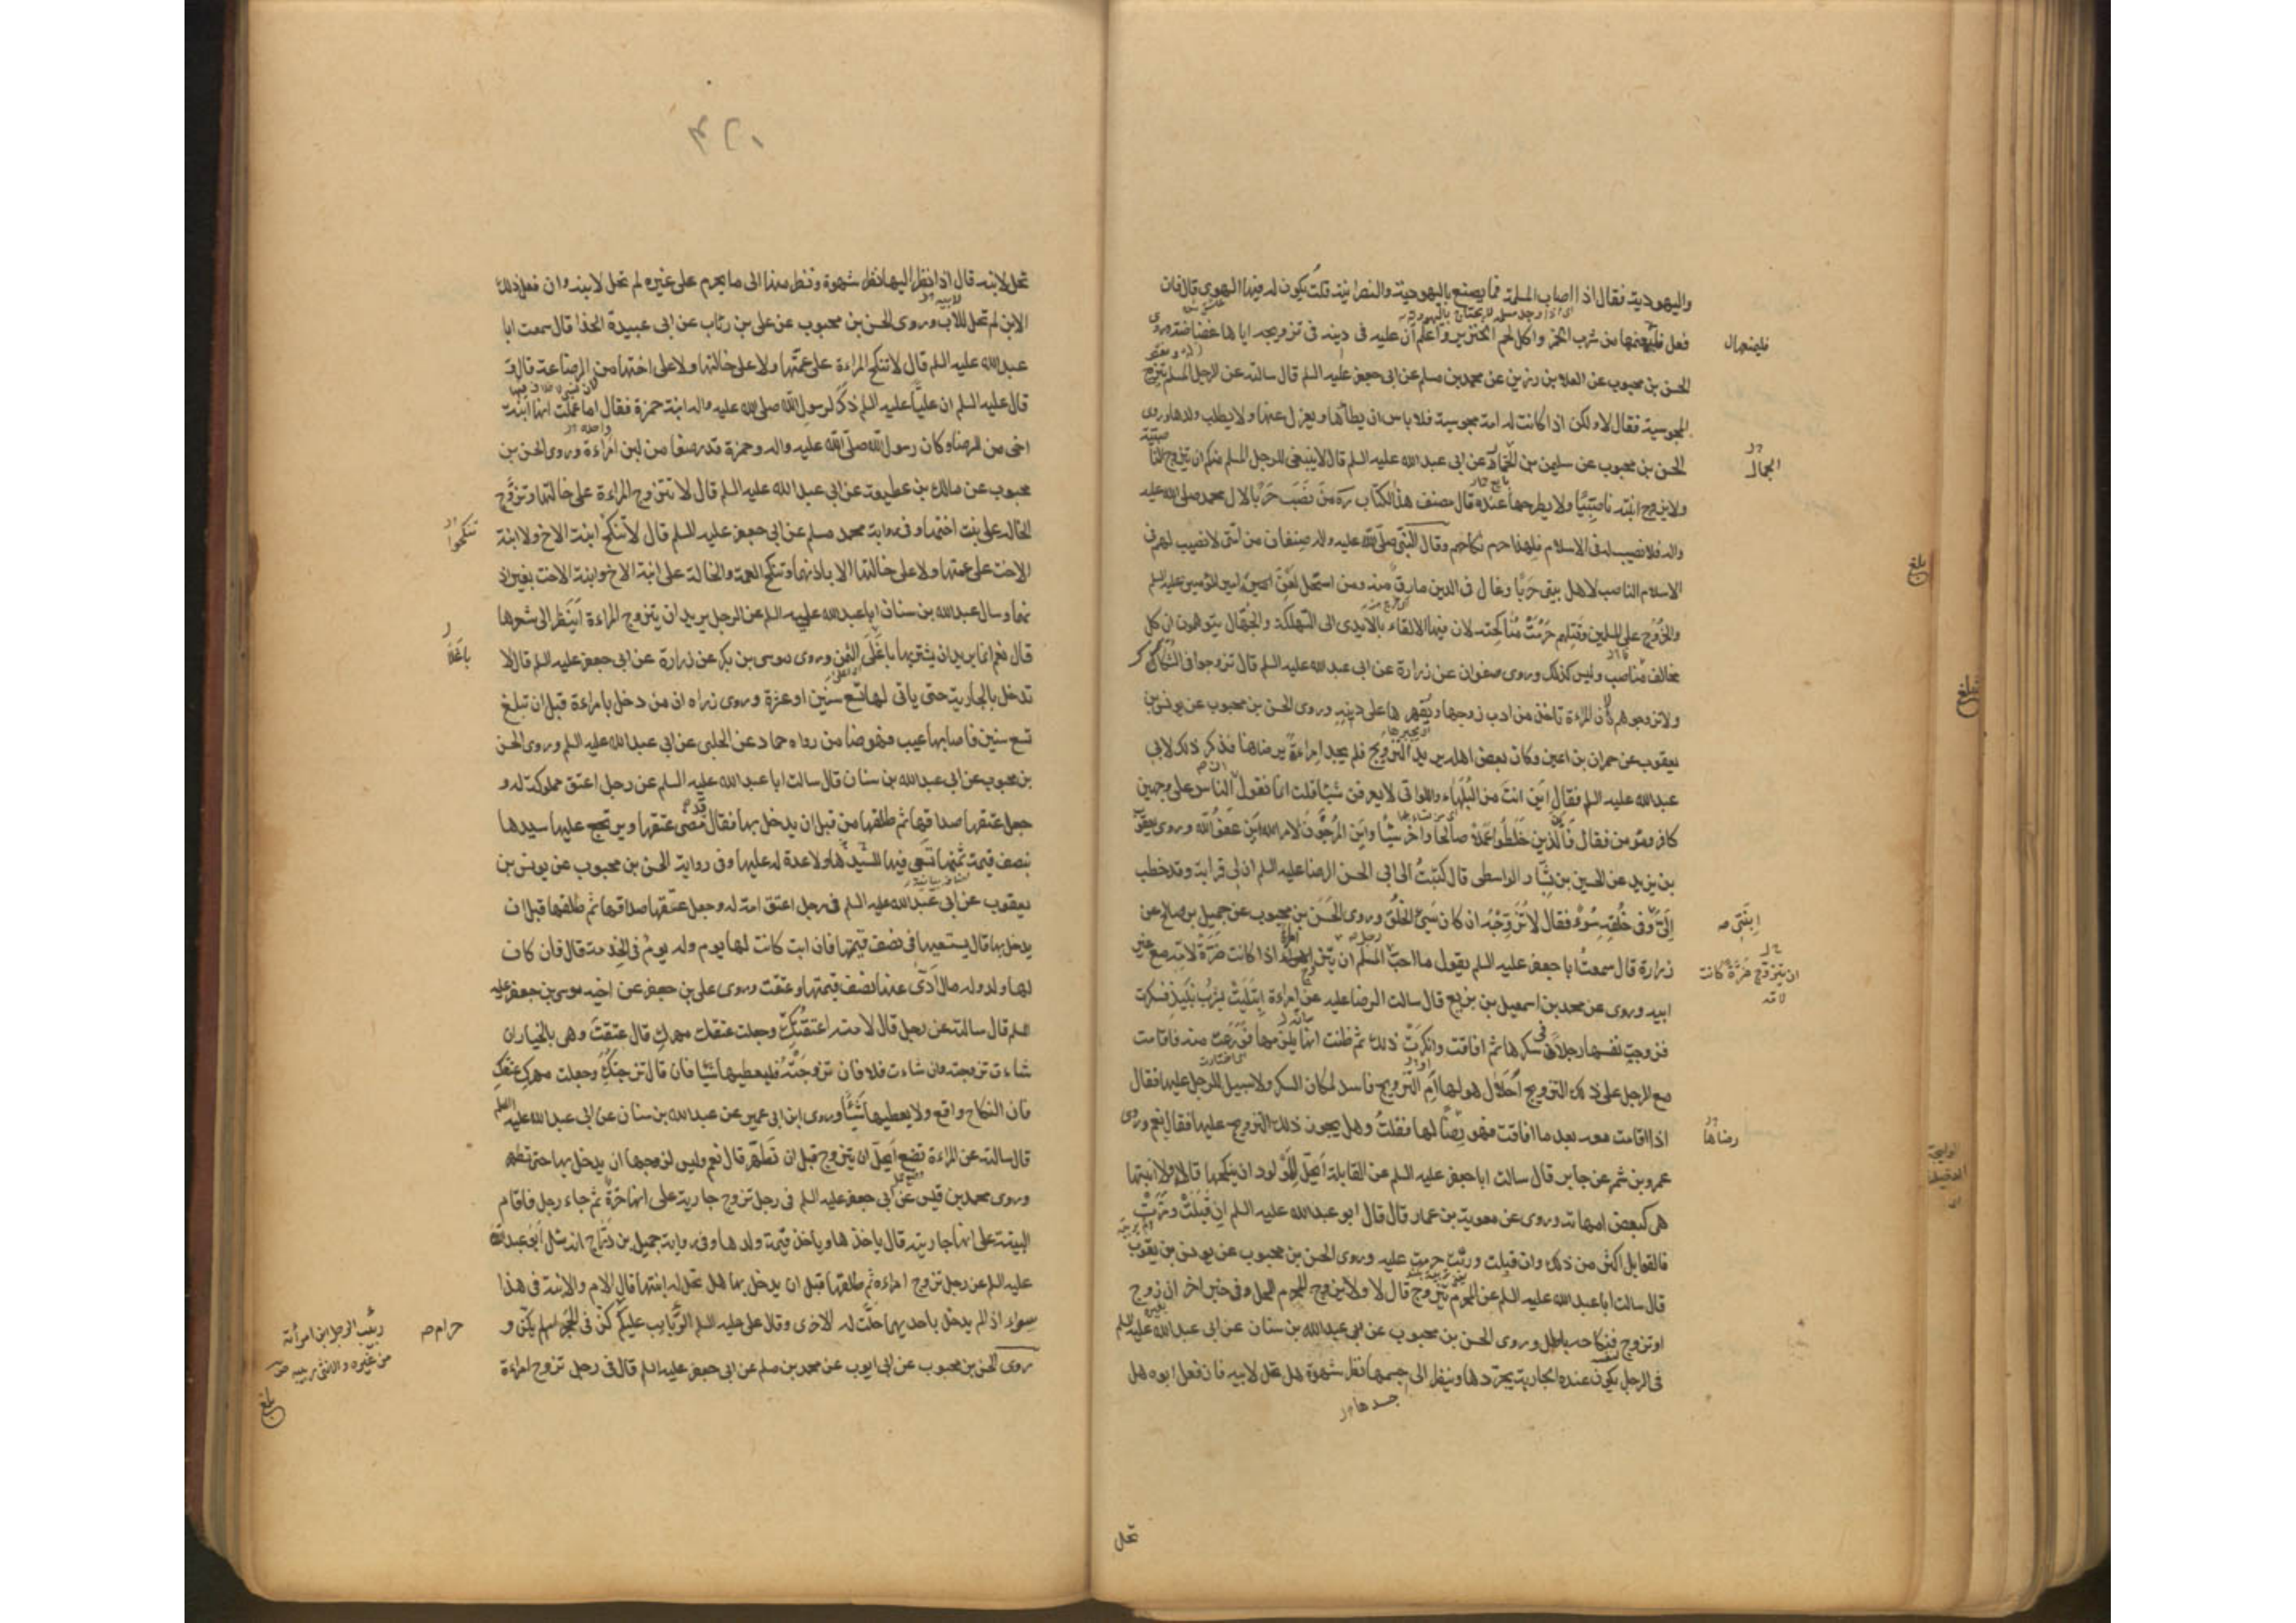 واليهودية فقال اذا اصاب المسلمة فما يصنع باليهودية والنصرانية قلت يكون له فيها الهوى قال فان
فعل فليمنعها من شرب الخمر واكل لحم الخنزير واعلم ان عليه فى دينه فى تزويجه اياها غضاضة وروى
فليمنعها ل
الحسن بن محبوب عن العلا بن رزين عن محمد بن مسلم عن ابى جعفر عليه السلم قال سالته عن الرجل المسلم يتزوج
المجوسية فقال لا ولكن اذا كانت له امة مجوسية فلا باس ان يطأها ويعزل عنها ولا يطلب ولدها وروى
الحسن بن محبوب عن سليمن عن ابى عبد الله عليه السلم قال لا ينبغى للرجل المسلم منكم ان يتزوج الناصبية
ولا يزوج ابنته ناصبيًا ولا يطرحها عنده قال مصنف هذا الكتاب ره من نصب حربا لال محمد صلى الله عليه
واله فلا نصيب له فى الاسلام فلهذا حرم نكاحهم وقال النبى صلى الله عليه واله صنفان من امتى لا نصيب لهم فى
الاسلام الناصب لاهل بيتى حربا وغال فى الدين مارق منه ومن استحل لعن امير المؤمنين عليه السلم
والخروج على المسلمين وقتلهم حرمت مناكحته لان فيها الالقاء بالايدى الى التهلكة والجهال يتوهمون ان كل
مخالف ناصب وليس كذلك وروى صفوان عن زرارة عن ابى عبد الله عليه السلم قال تزوجوا فى الشكاك
ولا تزوجوهم لان المراءة تاخذ من ادب زوجها ويقهرها على دينه وروى الحسن بن محبوب عن يونس بن
يعقوب عن حمران بن اعين وكان بعض اهله يريد التزويج فلم يجد امراءة يرضاها فذكر ذلك لابى
عبد الله عليه السلم فقال اين انت من البلهاء واللواتى لا يعرفن شيئا قلت انا نقول ان الناس على وجهين
كافر ومؤمن فقال فاين الذين خلطوا عملا صالحا واخر سيئا واين المرجون لامر الله اين عفو الله وروى يعقوب
بن يزيد عن الحسين بن بشار الواسطى قال كتبت الى ابى الحسن الرضا عليه السلم ان لى قرابة وقد خطب
الى وفى خلقه سوء فقال لا تزوجه ان كان سيئ الخلق وروى الحسن بن محبوب عن جميل بن صالح عن
ابنتى صه
زرارة قال سمعت ابا جعفر عليه السلم يقول ما احب للرجل المسلم ان يتزوج امراة اذا كانت ضرة لامه مع غير
ان يتزوج ضرة كانت
لامه
ابيه وروى عن محمد بن اسمعيل بن بزيع قال سالت الرضا عليه عن امراءة ابتليت بشرب نبيذ فسكرت
فزوجت نفسها رجلا فى سكرها ثم افاقت وانكرت ذلك ثم ظنت انه يلزمها فورعت منه فاقامت
مع الرجل على ذلك التزويج احلال هو لها ام التزويج فاسد لمكان السكر ولا سبيل للرجل عليها فقال
اذا اقامت معه بعد ما افاقت فهو رضا لها فقلت وهل يجوز ذلك التزويج عليها فقال نعم وروى
رضاها
عمرو بن شمر عن جابر قال سالت ابا جعفر عليه السلم عن القابلة ايحل للمولود ان ينكحها قال لا ولا ابنتها
هى كبعض امهاته وروى عن معوية بن عمار قال قال ابو عبد الله عليه السلم ان قبلت ومرت
فالقوابل اكثر من ذلك وان قبلت وربت حرمت عليه وروى الحسن بن محبوب عن يونس بن يعقوب
قال سالت ابا عبد الله عليه السلم عن المحرم يتزوج قال لا ولا يزوج المحرم المحل وفى خبر اخر ان زوج
او تزوج فنكاحه باطل وروى الحسن بن محبوب عن عبد الله بن سنان عن ابى عبد الله عليه السلم
فى الرجل يكون عنده الجارية يجردها وينظر الى جسمها نظر شهوة هل تحل لابيه فان فعل ابوه هل
جسدها
تحل
بلغ
٣٢١
تحل لابنه قال اذا نظر اليها نظر شهوة ونظر منها الى ما يحرم على غيره لم تحل لابنه وان فعل ذلك
الابن لم تحل للاب وروى الحسن بن محبوب عن على بن رئاب عن ابى عبيدة الحذا قال سمعت ابا
عبد الله عليه السلم قال لا تنكح المراءة على عمتها ولا على خالتها ولا على اختها من الرضاعة قال و
قال عليه السلم ان عليا عليه السلم ذكر لرسول الله صلى الله عليه واله ابنة حمزة فقال اما علمت انها ابنة
اخى من الرضاع وكان رسول الله صلى الله عليه واله وحمزة قد رضعا من لبن امراءة وروى الحسن بن
محبوب عن مالك بن عطية عن ابى عبد الله عليه السلم قال لا تتزوج المراءة على خالتها وتزوج
الخالة على بنت اختها وفى رواية محمد مسلم عن ابى جعفر عليه السلم قال لا تنكح ابنة الاخ ولا ابنة
تنكحوا
الاخت على عمتها ولا على خالتها الا باذنهما وتنكح العمة والخالة على ابنة الاخ وابنة الاخت بغير اذ
نهما وسال عبد الله بن سنان ابا عبد الله عليه السلم عن الرجل يريد ان يتزوج المراءة اينظر الى شعرها
قال نعم انما يريد ان يشتريها باغلى الثمن وروى موسى بن بكر عن زرارة عن ابى جعفر عليه السلم قال لا
باغلا
تدخل بالجارية حتى ياتى لها تسع سنين او عشرة وروى زراه ان من دخل بامراءة قبل ان تبلغ
تسع سنين فاصابها عيب فهو ضامن رواه حماد عن الحلبى عن ابى عبد الله عليه السلم وروى الحسن
بن محبوب عن ابى عبد الله بن سنان قال سالت ابا عبد الله عليه السلم عن رجل اعتق مملوكة له و
جعل عتقها صداقها ثم طلقها من قبل ان يدخل بها فقال قد مضى عتقها ويرتجع عليها سيدها
بنصف قيمة ثمنها تسعى فيها لسيدها ولا عدة له عليها وفى رواية الحسن بن محبوب عن يونس بن
يعقوب عن ابى عبد الله عليه السلم فى رجل اعتق امة له وجعل عتقها صداقها ثم طلقها قبل ان
يدخل بها قال يستسعيها فى نصف قيمتها فان ابت كانت لها يوم وله يوم فى الخدمة قال فان كان
لها ولد وله مال ادى عنها نصف قيمتها وعتقت وروى على بن جعفر عن اخيه موسى بن جعفر عليه
السلم قال سالته عن رجل قال لامته اعتقتك وجعلت عتقك مهرك قال عتقت وهى بالخيار ان
شاءت تزوجته وان شاءت فلا فان تزوجته فليعطيها شيئا فان قال تزوجتك وجعلت مهرك عتقك
فان النكاح واقع ولا يعطيها شيئا وروى ابن ابى عمير عن عبد الله بن سنان عن ابى عبد الله عليه السلم
قال سالته عن المراءة تضع ايحل ان يتزوج قبل ان تطهر قال نعم وليس لزوجها ان يدخل بها حتى تطهر
وروى محمد بن قيس عن ابى جعفر عليه السلم فى رجل تزوج جارية على انها حرة ثم جاء رجل فاقام
البينة على انها جاريته قال ياخذها وياخذ قيمة ولدها وفى رواية جميل بن دراج انه سئل ابو عبد الله
عليه السلم عن رجل تزوج امراءة ثم طلقها قبل ان يدخل بها هل تحل له ابنتها قال الام والابنة فى هذا
سواء اذا لم يدخل باحديهما حلت له الاخرى وقال على عليه السلم الربايب عليكم كن فى الحجر او لم يكن و
حرام صه
روى الحسن بن محبوب عن ابى ايوب عن محمد بن مسلم عن ابى جعفر عليه السلم قال فى رجل تزوج امراءة
ربيب الرجل ابن امرأته
من غيره والانثى ربيبه
بلغ